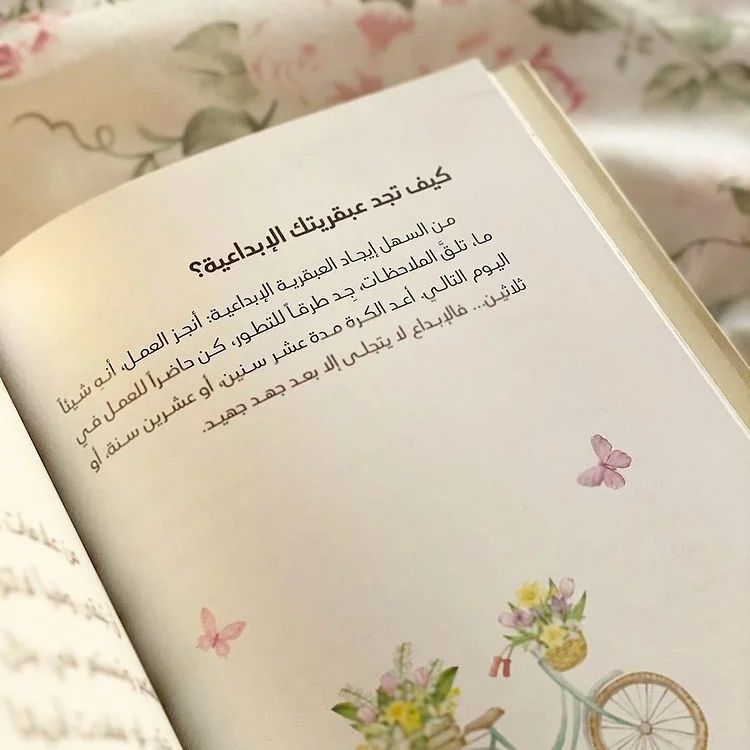 كيف تجد عبقريتك الإبداعية؟
من السهل إيجاد العبقرية الإبداعية: أنجز العمل، أنهِ شيئاً
ما، تلقَّ الملاحظات، جِد طرقاً للتطور، كن حاضراً للعمل في
اليوم التالي. أعد الكرة مدة عشر سنين، أو عشرين سنة، أو
ثلاثين... فالإبداع لا يتجلى إلا بعد جهد جهيد.